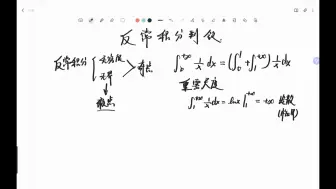 反常积分判敛
反常积分 { 无穷限 无界 > 奇点
↓
瑕点
∫₀^{+∞} 1/x dx = (∫₀¹ + ∫₁^{+∞}) 1/x dx
重要尺度
∫₁^{+∞} 1/x dx = lnx |₁^{+∞} = +∞ 发散